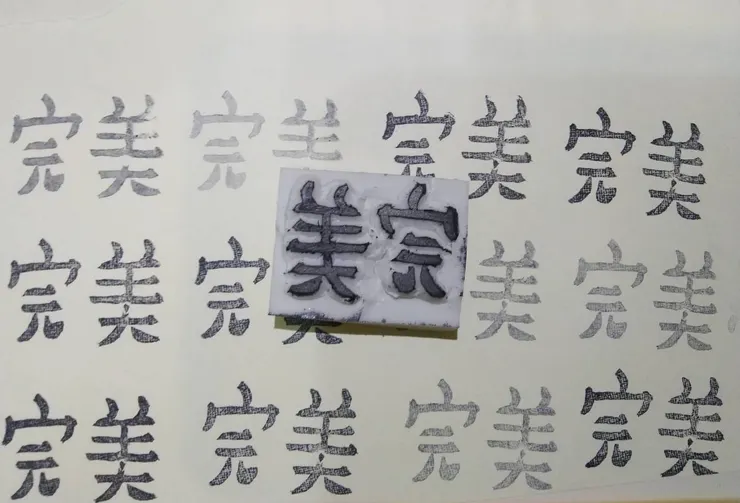 完美 完美 完美 完美
美完
完美 完美 美 完美
完美 完美 完美 完美